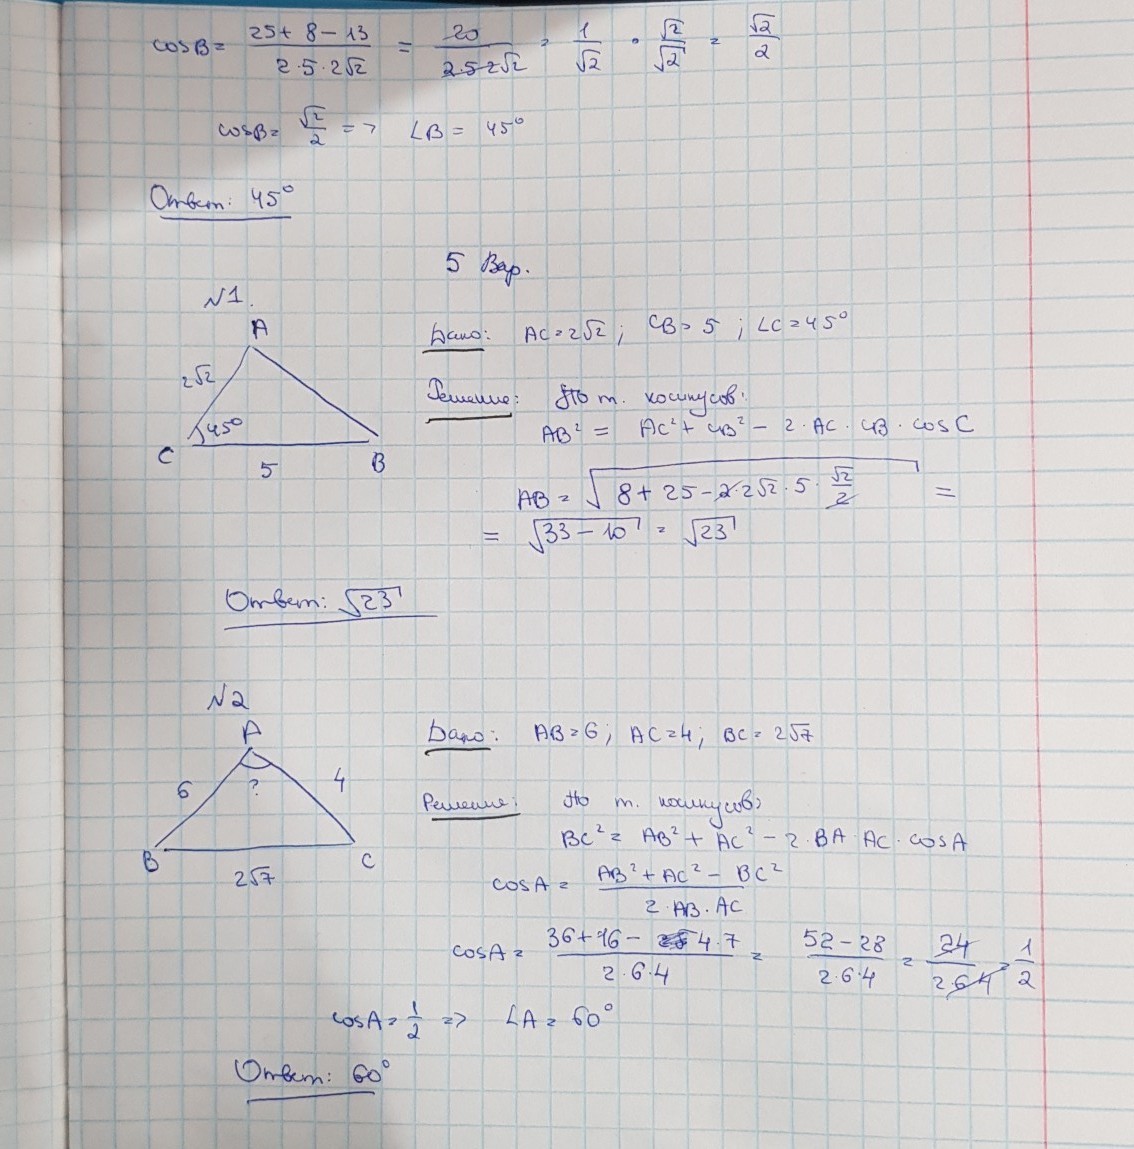 cosB = (25 + 8 - 13)/(2·5·2√2) = 20/(2·5·2√2) = 1/√2 · √2/√2 = √2/2
cosB = √2/2 => ∠B = 45°
Ответ: 45°
5 Вар.
N1.
A
2√2
45°
C
5
B
Дано: AC = 2√2 ; CB = 5 ; ∠C = 45°
Решение: По т. косинусов:
AB² = AC² + CB² - 2·AC·CB·cosC
AB = √(8 + 25 - 2·2√2·5·√2/2) =
= √(33 - 10) = √23
Ответ: √23
N2
A
6
?
4
B
2√7
C
Дано: AB = 6 ; AC = 4 ; BC = 2√7
Решение: По т. косинусов:
BC² = AB² + AC² - 2·BA·AC·cosA
cosA = (AB² + AC² - BC²)/(2·AB·AC)
cosA = (36 + 16 - 4·7)/(2·6·4) = (52 - 28)/(2·6·4) = 24/(2·6·4) = 1/2
cosA = 1/2 => ∠A = 60°
Ответ: 60°